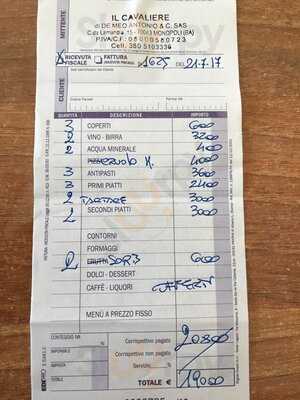 MITTENTE
IL CAVALIERE
di DE MEO ANTONIO & C. SAS
MONOPOLI (BA)
P.IVA/C.F. 08005580723
Cell. 380 5103336
X RICEVUTA FISCALE
FATTURA
(RICEVUTA FISCALE)
1625 DEL 21.7.17
CLIENTE
QUANTITÀ DESCRIZIONE IMPORTO
3 COPERTI 600
2 VINO - BIRRA 3200
2 ACQUA MINERALE 400
M. 4000
3 ANTIPASTI 3600
3 PRIMI PIATTI 2400
2 3000
2 SECONDI PIATTI 3000
CONTORNI
FORMAGGI
2 FRUTTA SORB 600
DOLCI - DESSERT
CAFFÈ - LIQUORI
MENÙ A PREZZO FISSO
CONTEGGIO IVA
Corrispettivo pagato 20800
IMPONIBILE
Corrispettivo non pagato
IMPOSTA
Servizio
TOTALE
TOTALE € 19000